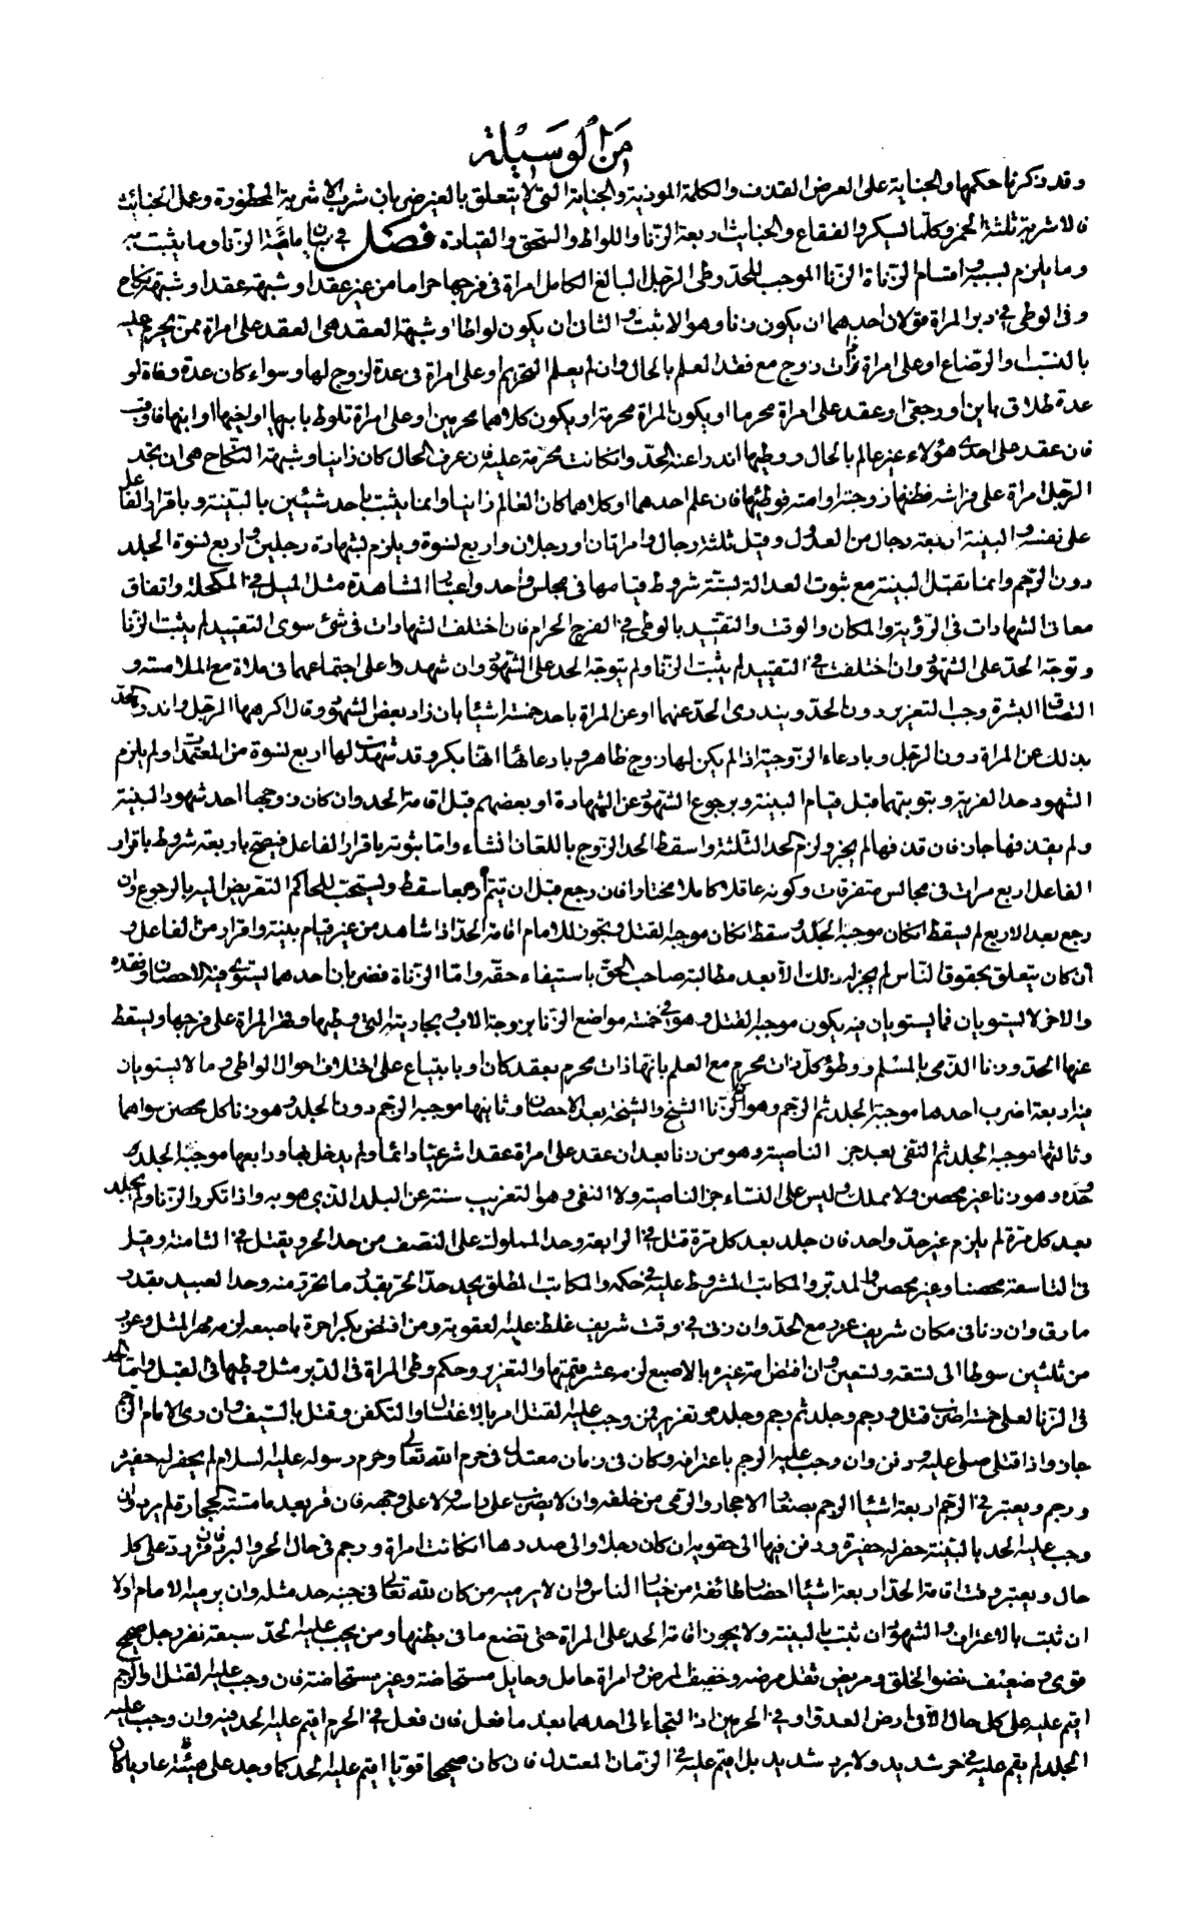 من الوسيلة
وقد ذكرنا حكمها والجناية على العرض القذف والكلمة الموذية والجناية التى لا يتعلق بالغير ضربان شرب الاشربة المحظورة وعمل الخبائث
فالاشربة ثلثة الخمر وكلما يسكر والفقاع والخبائث اربعة الزنا واللواط والسحق والقيادة فصل في بيان ماهية الزنا وما يثبت به
وما يلزم بسببه واقسام الزناة الزنا الموجب للحد وطى الرجل البالغ الكامل امراة فى فرجها حراما من غير عقد او شبهة عقد او شبهة نكاح
وفى الوطى في دبر المراة قولان احدهما ان يكون زنا وهو الاثبت والثانى ان يكون لواطا وشبهة العقد هى العقد على امراة ممن يحرم عليه
بالنسب والرضاع او على امراة ذات زوج مع فقد العلم بالحال وان لم يعلم التحريم او على امراة فى عدة لزوج لها وسواء كان عدة وفاة او
عدة طلاق باين او رجعى او عقد على امراة محرما او يكون المراة محرمة او يكون كلاهما محرمين او على امراة تلوط بابيها او اخيها او ابنها فاوقب
فان عقد على احدى هؤلاء غير عالم بالحال ووطيها اندرا عنه الحد وان كانت محرمة عليه فان عرف الحال كان زانيا وشبهة النكاح هى ان يجد
الرجل امراة على فراشه فظنها زوجته او امته فوطئها فان علم احدهما او كلاهما كان العالم زانيا وانما يثبت باحد شيئين بالبينة وباقرار الفاعل
على نفسه والبينة اربعة رجال من العدول وقيل ثلثة رجال وامراتان او رجلان واربع نسوة ويلزم بشهادة رجلين واربع نسوة الجلد
دون الرجم وانما تقبل البينة مع ثبوت العدالة بستة شروط قيامها فى مجلس واحد واعتبار المشاهدة مثل الميل في المكحلة واتفاق
معانى الشهادات فى الرؤية والمكان والوقت والتقييد بالوطى في الفرج الحرام فان اختلف الشهادات فى شئ سوى التقييد لم يثبت الزنا
وتوجه الحد على الشهود وان اختلفت في التقييد لم يثبت الزنا ولم يتوجه الحد على الشهود وان شهدوا على اجتماعهما فى ملاة مع الملامسة و
التصاق البشرة وجب التعزير دون الحد ويندرى الحد عنهما او عن المراة باحد خمسة اشياء بان زاد بعض الشهود وقال اكرهها الرجل واندرا الحد
بذلك عن المراة دون الرجل وبادعاء الزوجية اذا لم يكن لها زوج ظاهر وبادعائها انها بكر وقد شهدت لها اربع نسوة من المعتمدات ولم يلزم
الشهود حد الفرية وبتوبتهما قبل قيام البينة وبرجوع الشهود عن الشهادة او بعضهم قبل اقامة الحد وان كان زوجها احد شهود البينة
ولم يقذفها جاز فان قذفها لم يجز ولزم الحد الثلثة واسقط الحد الزوج باللعان ان شاء واما ثبوته باقرار الفاعل فيصح باربعة شروط باقرار
الفاعل اربع مرات فى مجالس متفرقات وكونه عاقلا كاملا مختارا فان رجع قبل ان يتم اربعا سقط ويستحب للحاكم التعريض اليه بالرجوع وان
رجع بعد الاربع لم يسقط ان كان موجبه الجلد وسقط ان كان موجبه القتل ويجوز للامام اقامة الحد اذا شاهد من غير قيام بينة واقرار من الفاعل و
ان كان يتعلق بحقوق الناس لم يجز له ذلك الا بعد مطالبة صاحب الحق باستيفاء حقه واما الزناة فضربان احدهما يستوى فيه الاحصان وفقده
والاخر لا يستويان فما يستويان فيه يكون موجبه القتل وهو في خمسة مواضع الزنا بزوجة الاب وبجاريته التى وطيها وقهر المراة على فرجها ويسقط
عنها الحد وزنا الذمى بالمسلم ووطؤ كل ذات محرم مع العلم بانها ذات محرم بعقد كان او بابتياع على اختلاف احوال الواطى وما لا يستويان
فيه اربعة اضرب احدها موجبه الجلد ثم الرجم وهو ان زنا الشيخ والشيخة بعد الاحصان وثانيها موجبه الرجم دون الجلد وهو زنا كل محصن سواهما
وثالثها موجبه الجلد ثم النفى بعد جز الناصية وهو من زنا بعد ان عقد على امراة عقدا شرعيا دائما ولم يدخل بها ورابعها موجبه الجلد
وحده وهو زنا غير محصن ولا مملك وليس على النساء جز الناصية ولا النفى وهو التغريب سنة عن البلد الذى هو به واذا تكرر الزنا ولم يجلد
بعد كل مرة لم يلزم غير حد واحد فان جلد بعد كل مرة قتل في الرابعة وحد المملوك على النصف من حد الحر ويقتل في الثامنة وقيل
فى التاسعة محصنا وغير محصن والمدبر والمكاتب المشروط عليه فى حكمه والمكاتب المطلق يحد حد الحر بقدر ما تحرر منه وحد العبيد بقدر
ما رق وان زنا فى مكان شريف عزر مع الحد وان زنى في وقت شريف غلظ عليه العقوبة ومن افتض بكرا حرة باصبعه لزمه مهر المثل وعزر
من ثلثين سوطا الى تسعة وتسعين وان افتض امة غيره بالاصبع لزمه عشر قيمتها والتعزير وحكم وطى المراة فى الدبر مثل وطيها فى القبل وانما الحد
فى الزنا لعلى خمسة اضرب قتل ورجم وجلد ثم رجم وجلد وتعزير فمن وجب عليه القتل امر بالاغتسال والتكفن وقتل بالسيف وان رى الامام الرجم
جاز واذا قتل صلى عليه ودفن وان وجب عليه الرجم باعترافه وكان فى زمان معتدل فى حرم الله تعالى وحرم رسوله عليه السلام لم يحفر له حفيرة
ورجم ويعتبر في الرجم اربعة اشياء الرجم بصغار الاحجار والرمى من خلفه وان لا يضرب على راسه ولا على وجهه فان فر بعد ما مسته الحجارة لم يرد وان
وجب عليه الحد بالبينة حفر له حفيرة ودفن فيها الى حقويه ان كان رجلا والى صدرها ان كانت امراة ورجم فى حال الحر والبرد فان فر رد على كل
حال ويعتبر وقت اقامة الحد اربعة اشياء احضار طائفة من خيار الناس وان لا يرميه من كان لله تعالى فى جنبه حد مثله وان يرميه الامام اولا
ان ثبت بالاعتراف والشهود ان ثبت بالبينة ولا يجوز اقامة الحد على المراة حتى تضع ما فى بطنها ومن يجب عليه الحد سبعة نفر رجل صحيح
قوى وضعيف نضو الخلق ومريض ثقل مرضه وخفيف المرض وامراة حامل وحايل مستحاضة وغير مستحاضة فان وجب عليه القتل او الرجم
اقيم عليه على كل حال الا فى ارض العدو او في الحرمين اذا التجاء الى احدهما بعد ما فعل فان فعل في الحرم اقيم عليه الحد فيه وان وجب عليه
الجلد لم يقم عليه في حر شديد ولا برد شديد بل اقيم عليه في الزمان المعتدل فان كان صحيحا قويا اقيم عليه الحد كما وجد على هيئة عاريا كان